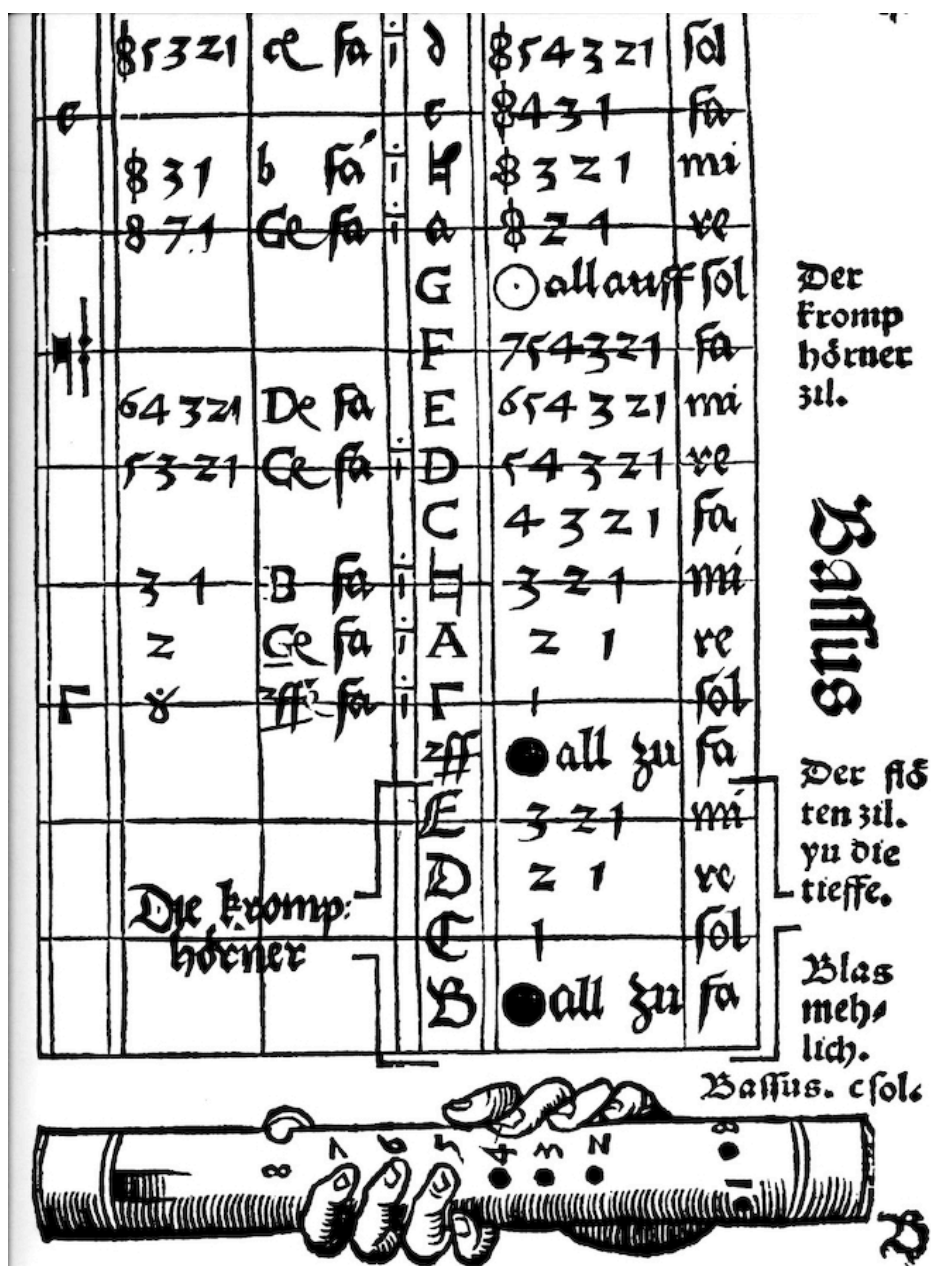 85321 ce fa i d 854321 sol
c c 8431 fa
831 b fa i ♮ 8321 mi
871 Ge fa i a 821 re
G ⊙all auff sol
F 754321 fa
64321 De fa E 654321 mi
5321 Ce fa i D 54321 re
C 4321 fa
31 B fa i ♮ 321 mi
2 Ge fa i A 21 re
Γ 8 fa i Γ 1 sol
ff ●all zu fa
E 321 mi
D 21 re
C 1 sol
B ●all zu fa
Die kromp:
hörner
Der
kromp
hörner
zil.
Bassus
Der flö
ten zil.
yn die
tieffe.
Blas
meh⸗
lich.
Bassus. c sol.
8 7 6 5 4 3 2 8 1
B